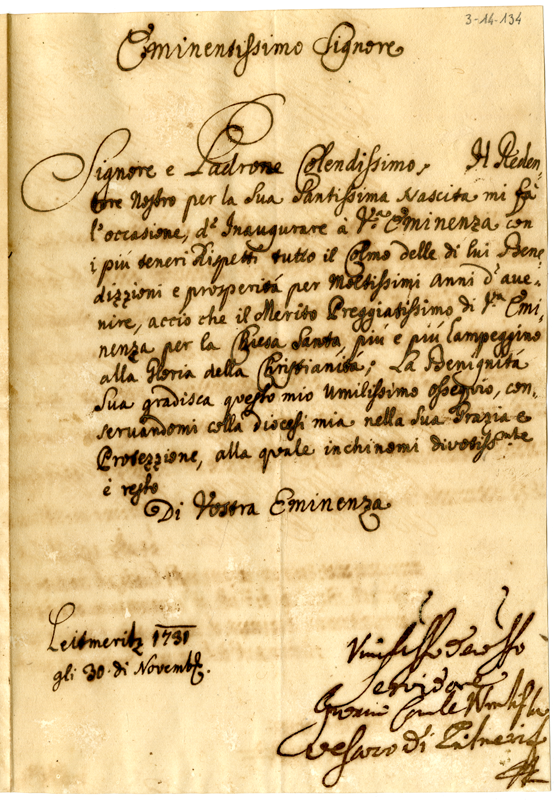 3-14-134
Eminentissimo Signore
Signore e Padrone Colendissimo, Il Reden-
tore Nostro per la Sua Santissima Nascita mi fà
l'occasione, d'Inaugurare à V.ra Eminenza con
i più teneri Rispetti tutto il Colmo delle di lui Bene-
dizzioni e prosperità per Moltissimi Anni d'ave-
nire, acciò che il Merito Preggiatissimo di V.ra Emi-
nenza per la Chiesa Santa, più e più lampeggino
alla Gloria della Christianità; La Benignità
Sua gradisca questo mio umilissimo ossequio, con-
servandomi colla diocesi mia nella Sua Grazia e
Protezzione, alla quale inchinomi divotiss.mte
è resto
Di Vostra Eminenza
Leitmeritz 1731
gli 30 di Novemb.
Servidore
Vescovo di